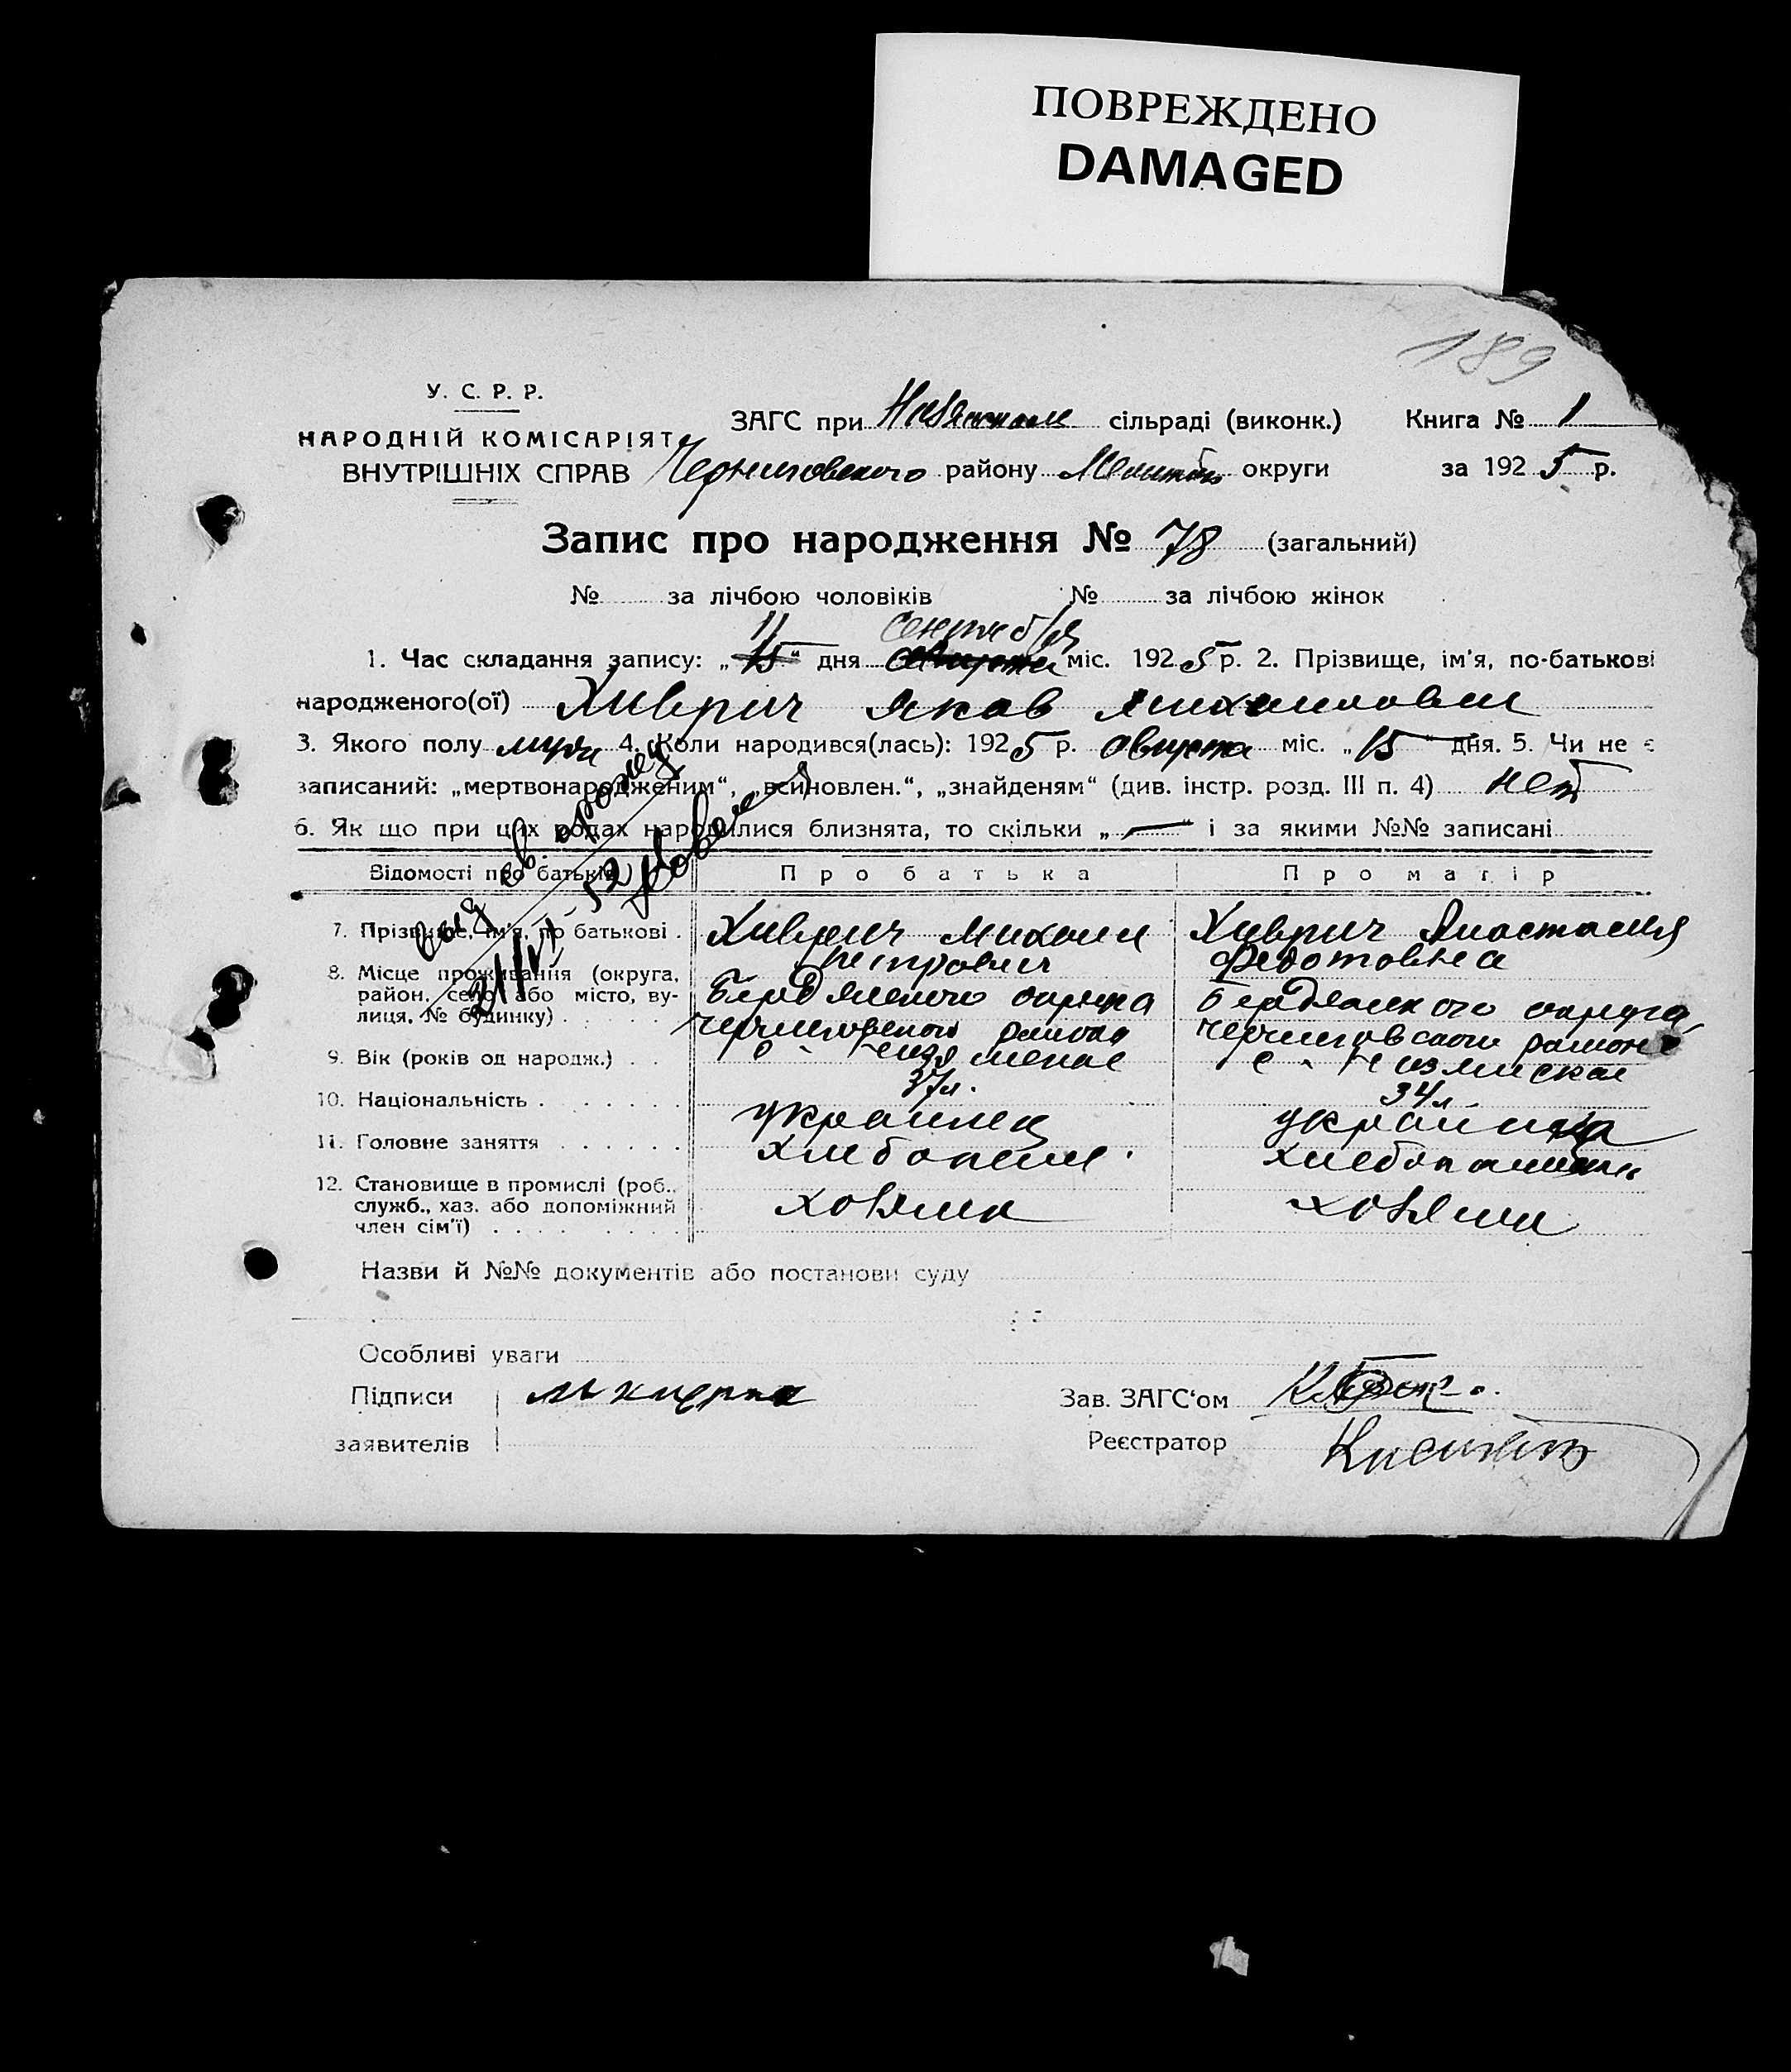 ПОВРЕЖДЕНО
DAMAGED
189
У. С. Р. Р.
НАРОДНІЙ КОМІСАРІЯТ
ВНУТРІШНІХ СПРАВ
ЗАГС при сільраді (виконк.) Книга № 1
Черниговского району округи за 1925 р.
Запис про народження № 78 (загальний)
№ за лічбою чоловіків № за лічбою жінок
11 Сентября
1. Час складання запису: „15“ дня августа міс. 1925 р. 2. Прізвище, ім'я, по-батькові
народженого(ої) Хиврич Яков Михайлович
3. Якого полу муж 4. Коли народився(лась): 1925 р. августа міс. „15“ дня. 5. Чи не є
записаний: „мертвонародженим“, „всиновлен.“, „знайденям“ (див. інстр. розд. III п. 4) нет
6. Як що при цих родах народилися близнята, то скільки „—“ і за якими №№ записані
Відомості про батьків Про батька Про матір
7. Прізвище, ім'я, по батькові Хиврич Михаил Петрович Хиврич Анастасия Федотовна
8. Місце проживання (округа, район, село або місто, вулиця, № будинку) Бердянского округа Черниговского района с. Бердянского округа, Черниговского района с.
9. Вік (років од народж.) 37 л. 34 л
10. Національність украинец украинка
11. Головне заняття хлебопаш.
12. Становище в промислі (роб., служб., хаз. або допоміжний член сім'ї) хозяин
Назви й №№ документів або постанови суду
Особливі уваги
Підписи
заявителів
Зав. ЗАГС'ом
Реєстратор